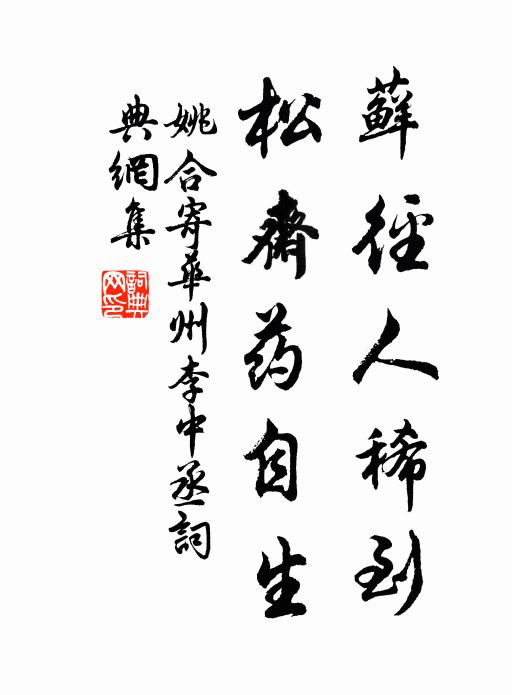 蘚徑人稀到
松齋药自生
姚合寄華州李中丞詞
典網集
詞典
网印